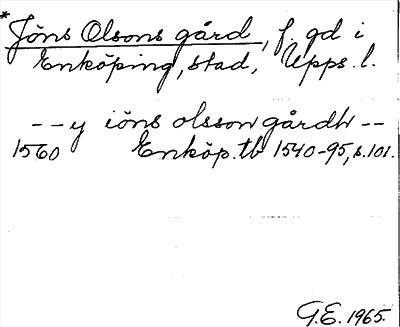 * Jöns Olsons gård, f. gd i
Enköping, stad, Upps. l.
-- y iöns olsson gårdh --
1560 Enköp. tb 1540-95, s. 101.
G.E. 1965.